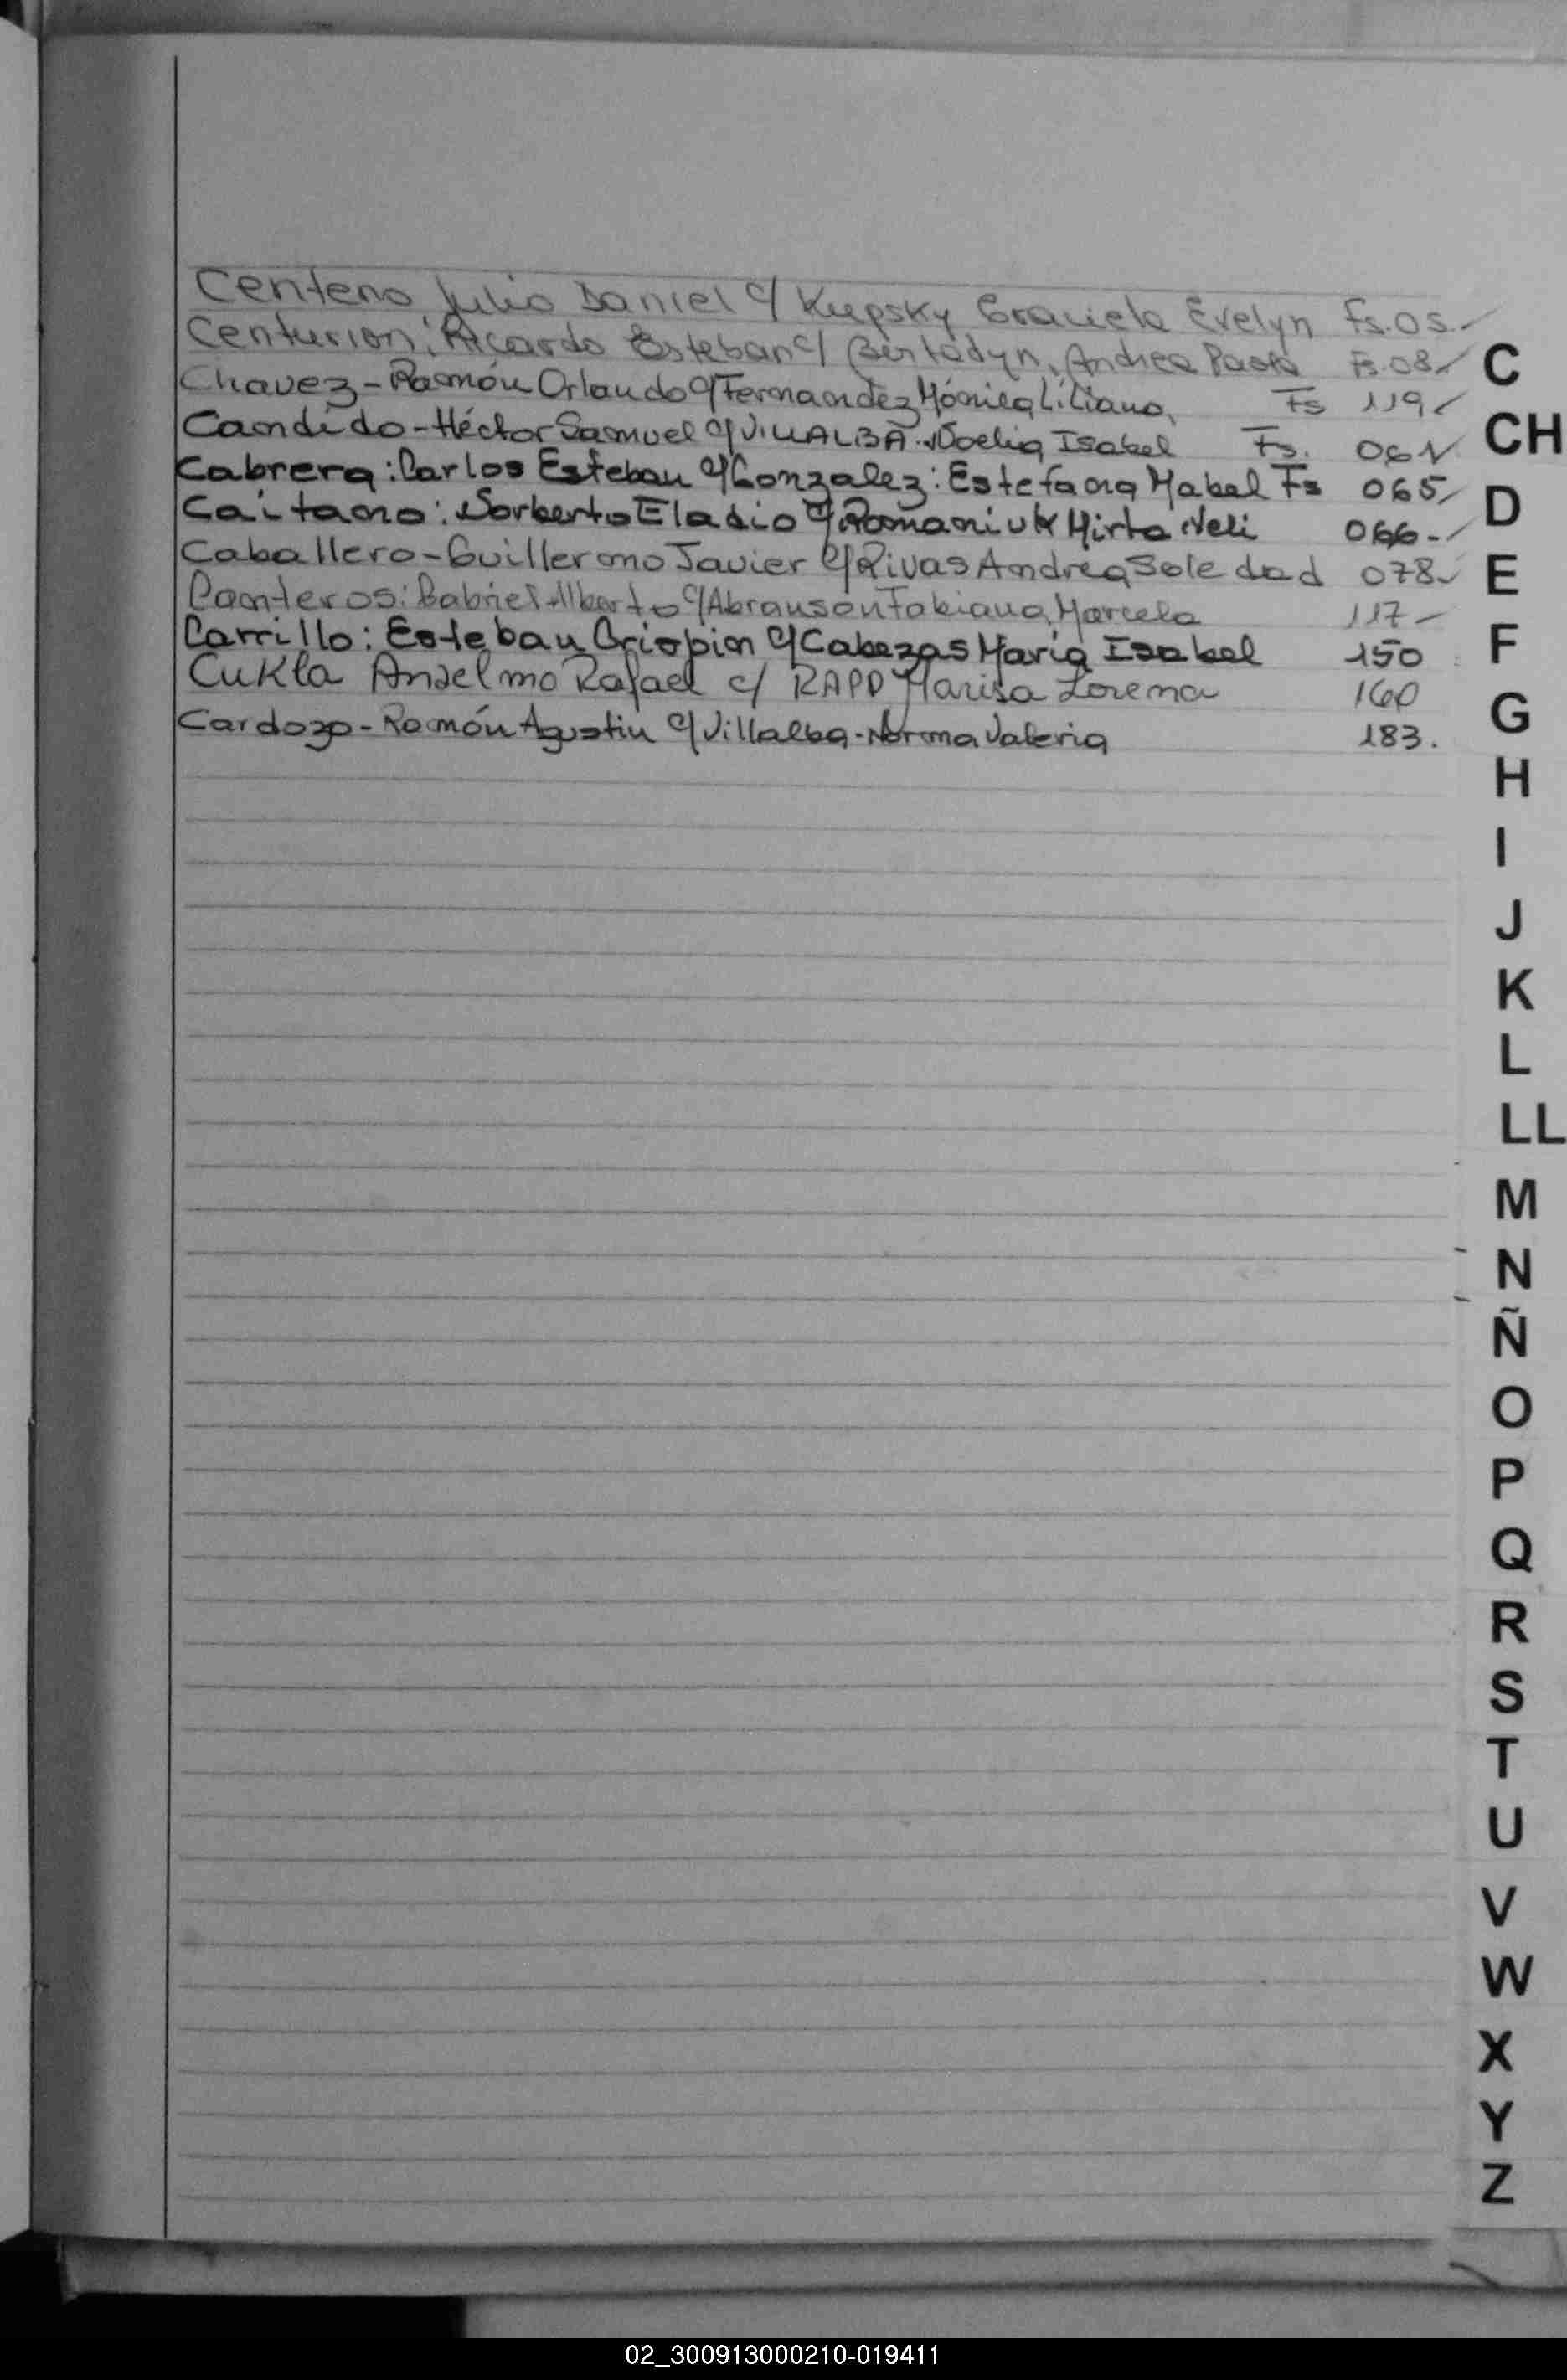 Centeno Julio Daniel c/ Kupsky Graciela Evelyn Fs. 05.-
Centurion: Ricardo Esteban c/ Andrea Paola Fs. 08.
Chavez - Ramón Orlando c/ Fernandez Mónica Liliana. Fs 119
Candido - Héctor Samuel c/ VILLALBA. Noelia Isabel Fs. 061
Cabrera: Carlos Esteban c/ Gonzalez: Estefana Mabel Fs 065
Caitano: Norberto Eladio c/ Romaniuk Mirta Neli 066.-
Caballero - Guillermo Javier c/ Rivas Andrea Soledad 078
Canteros: Gabriel Alberto c/ Abranson Fabiana Marcela 117-
Carrillo: Esteban Crispin c/ Cabezas Maria Isabel 150
Cukla Anselmo Rafael c/ RAPP Marisa Lorena 160
Cardozo - Ramón Agustin c/ Villalba - Norma Valeria 183.
C
CH
D
E
F
G
H
I
J
K
L
LL
M
N
Ñ
O
P
Q
R
S
T
U
V
W
X
Y
Z
02_300913000210-019411